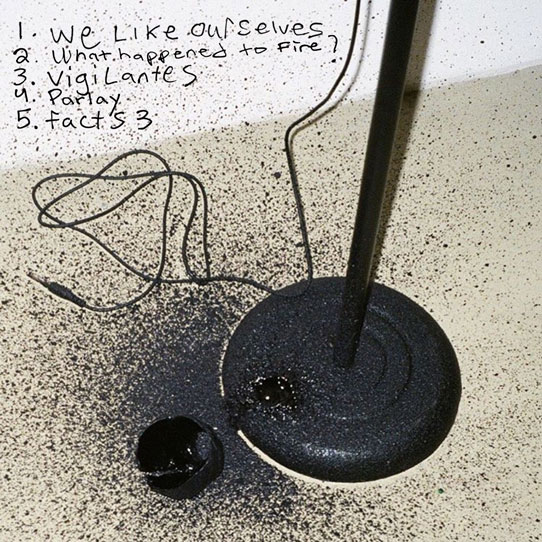 1. We Like Ourselves
2. What happened to Fire?
3. VigiLantes
4. Parlay
5. facts 3